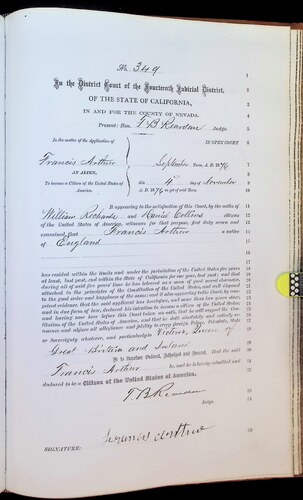 No. 349
In the District Court of the Fourteenth Judicial District,
OF THE STATE OF CALIFORNIA,
IN AND FOR THE COUNTY OF NEVADA.
Present: Hon. T B Reardon Judge.
In the matter of the Application of
IN OPEN COURT
Francis Arthur
September Term, A. D. 1876
AN ALIEN,
this 4th day of November
To become a Citizen of the United States of America.
A. D. 1876
It appearing to the satisfaction of this Court, by the oaths of
William Richards and Collins citizens
of the United States of America, witnesses for that purpose, first duly sworn and
examined, that Francis Arthur a native
of England
has resided within the limits and under the jurisdiction of the United States five years
at least, last past, and within the State of California for one year, last past; and that
during all of said five years' time he has behaved as a man of good moral character,
attached to the principles of the Constitution of the United States, and well disposed
to the good order and happiness of the same; and it also appearing to this Court, by com-
petent evidence, that the said applicant has heretofore, and more than two years since,
and in due form of law, declared his intention to become a citizen of the United States,
and having now here before this Court taken an oath, that he will support the Con-
stitution of the United States of America, and that he doth absolutely and entirely re-
nounce and abjure all allegiance and fidelity to every foreign Prince, Potentate, State
or Sovereignty whatever, and particularly to Victoria, Queen of
Great Britain and Ireland
It is therefore Ordered, Adjudged and Decreed, That the said
Francis Arthur be, and he is hereby admitted and
declared to be a Citizen of the United States of America.
T B Reardon
Judge.
SIGNATURE: Francis Arthur